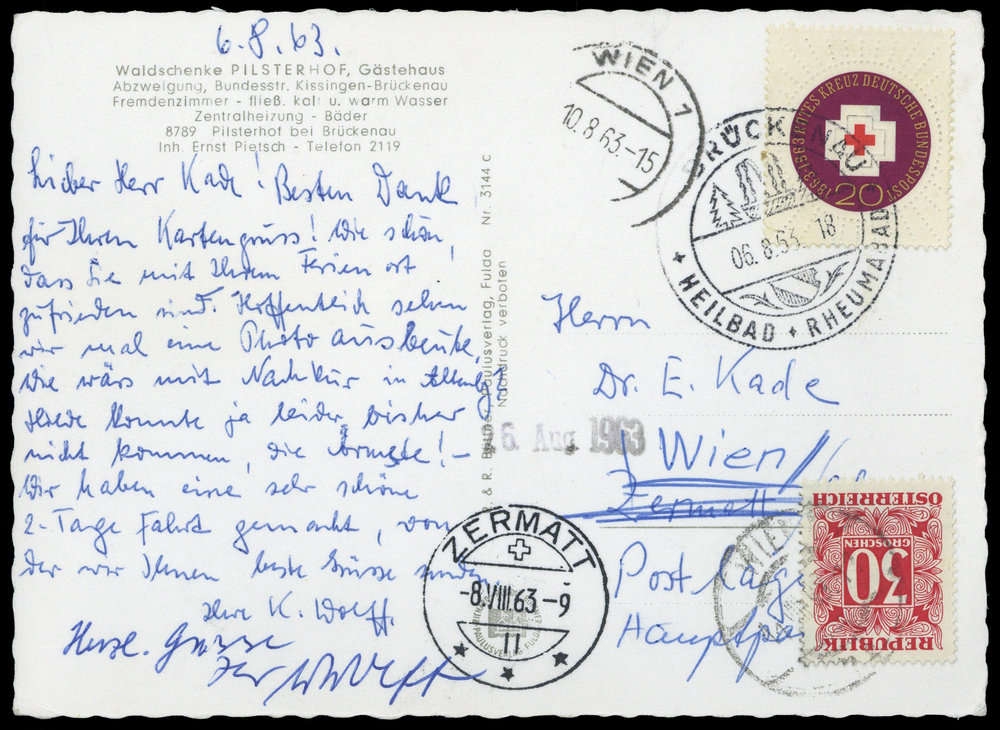 6.8.63.
Waldschenke PILSTERHOF, Gästehaus
Abzweigung, Bundesstr. Kissingen-Brückenau
Fremdenzimmer - fließ. kalt u. warm Wasser
Zentralheizung - Bäder
8789 Pilsterhof bei Brückenau
Inh. Ernst Pietsch - Telefon 2119
Lieber Herr Kade! Besten Dank
für Ihren Kartengruss! Wie schön,
dass Sie mit Ihrem Ferien ort
zufrieden sind. Hoffentlich sehen
wir mal eine Photo ausbeute,
Wie wärs mit Nachkur in
konnte ja leider bisher
nicht kommen, die Ärmste! -
Wir haben eine sehr schöne
2-Tage Fahrt gemacht, von
der wir Ihnen beste Grüsse senden
Ihre K. Wolff.
Herzl. Grüsse
Ihr
Nr. 3144 c
Paulusverlag, Fulda
Nachdruck verboten
WIEN 1
10.8.63.-15
BRÜCKENAU
06.8.63. 18
+ HEILBAD + RHEUMABAD
1863 1963 ROTES KREUZ DEUTSCHE BUNDESPOST
20
Herrn
Dr. E. Kade
6. Aug. 1963
Wien
Zermatt
Postlage
Hauptpo
ZERMATT
-8.VIII.63-9
11
PAULUSVERLAG FULDA
WIEN
REPUBLIK
30
GROSCHEN
ÖSTERREICH